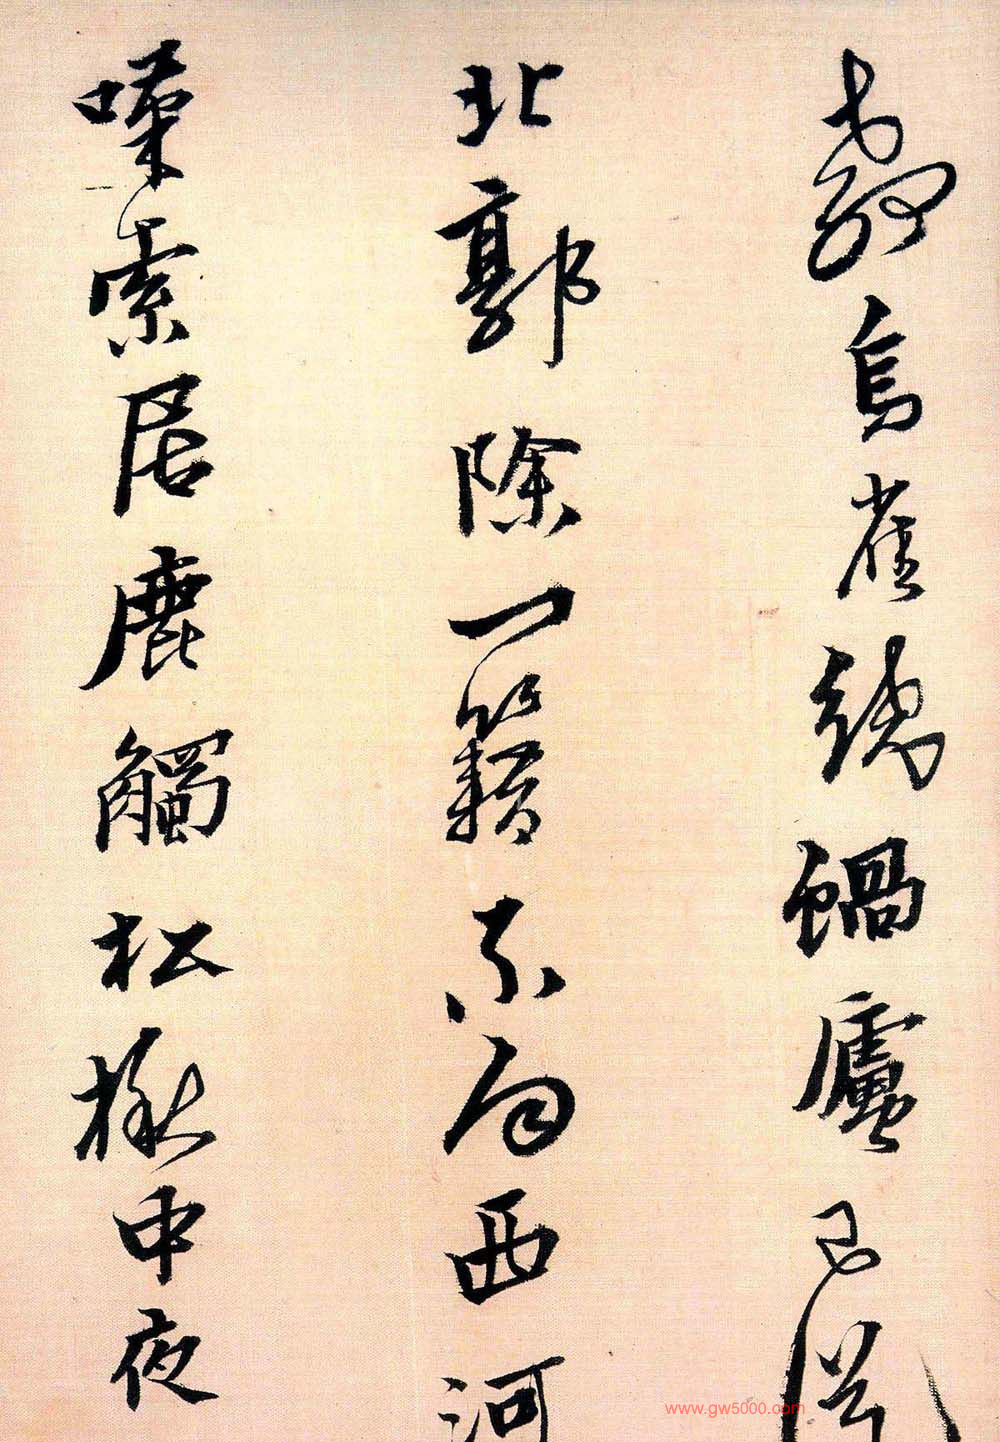 教烏雀蝸廬已從
北郭除一籍不向西河
嘆索居鹿觸松楸中夜
www.gw5000.com